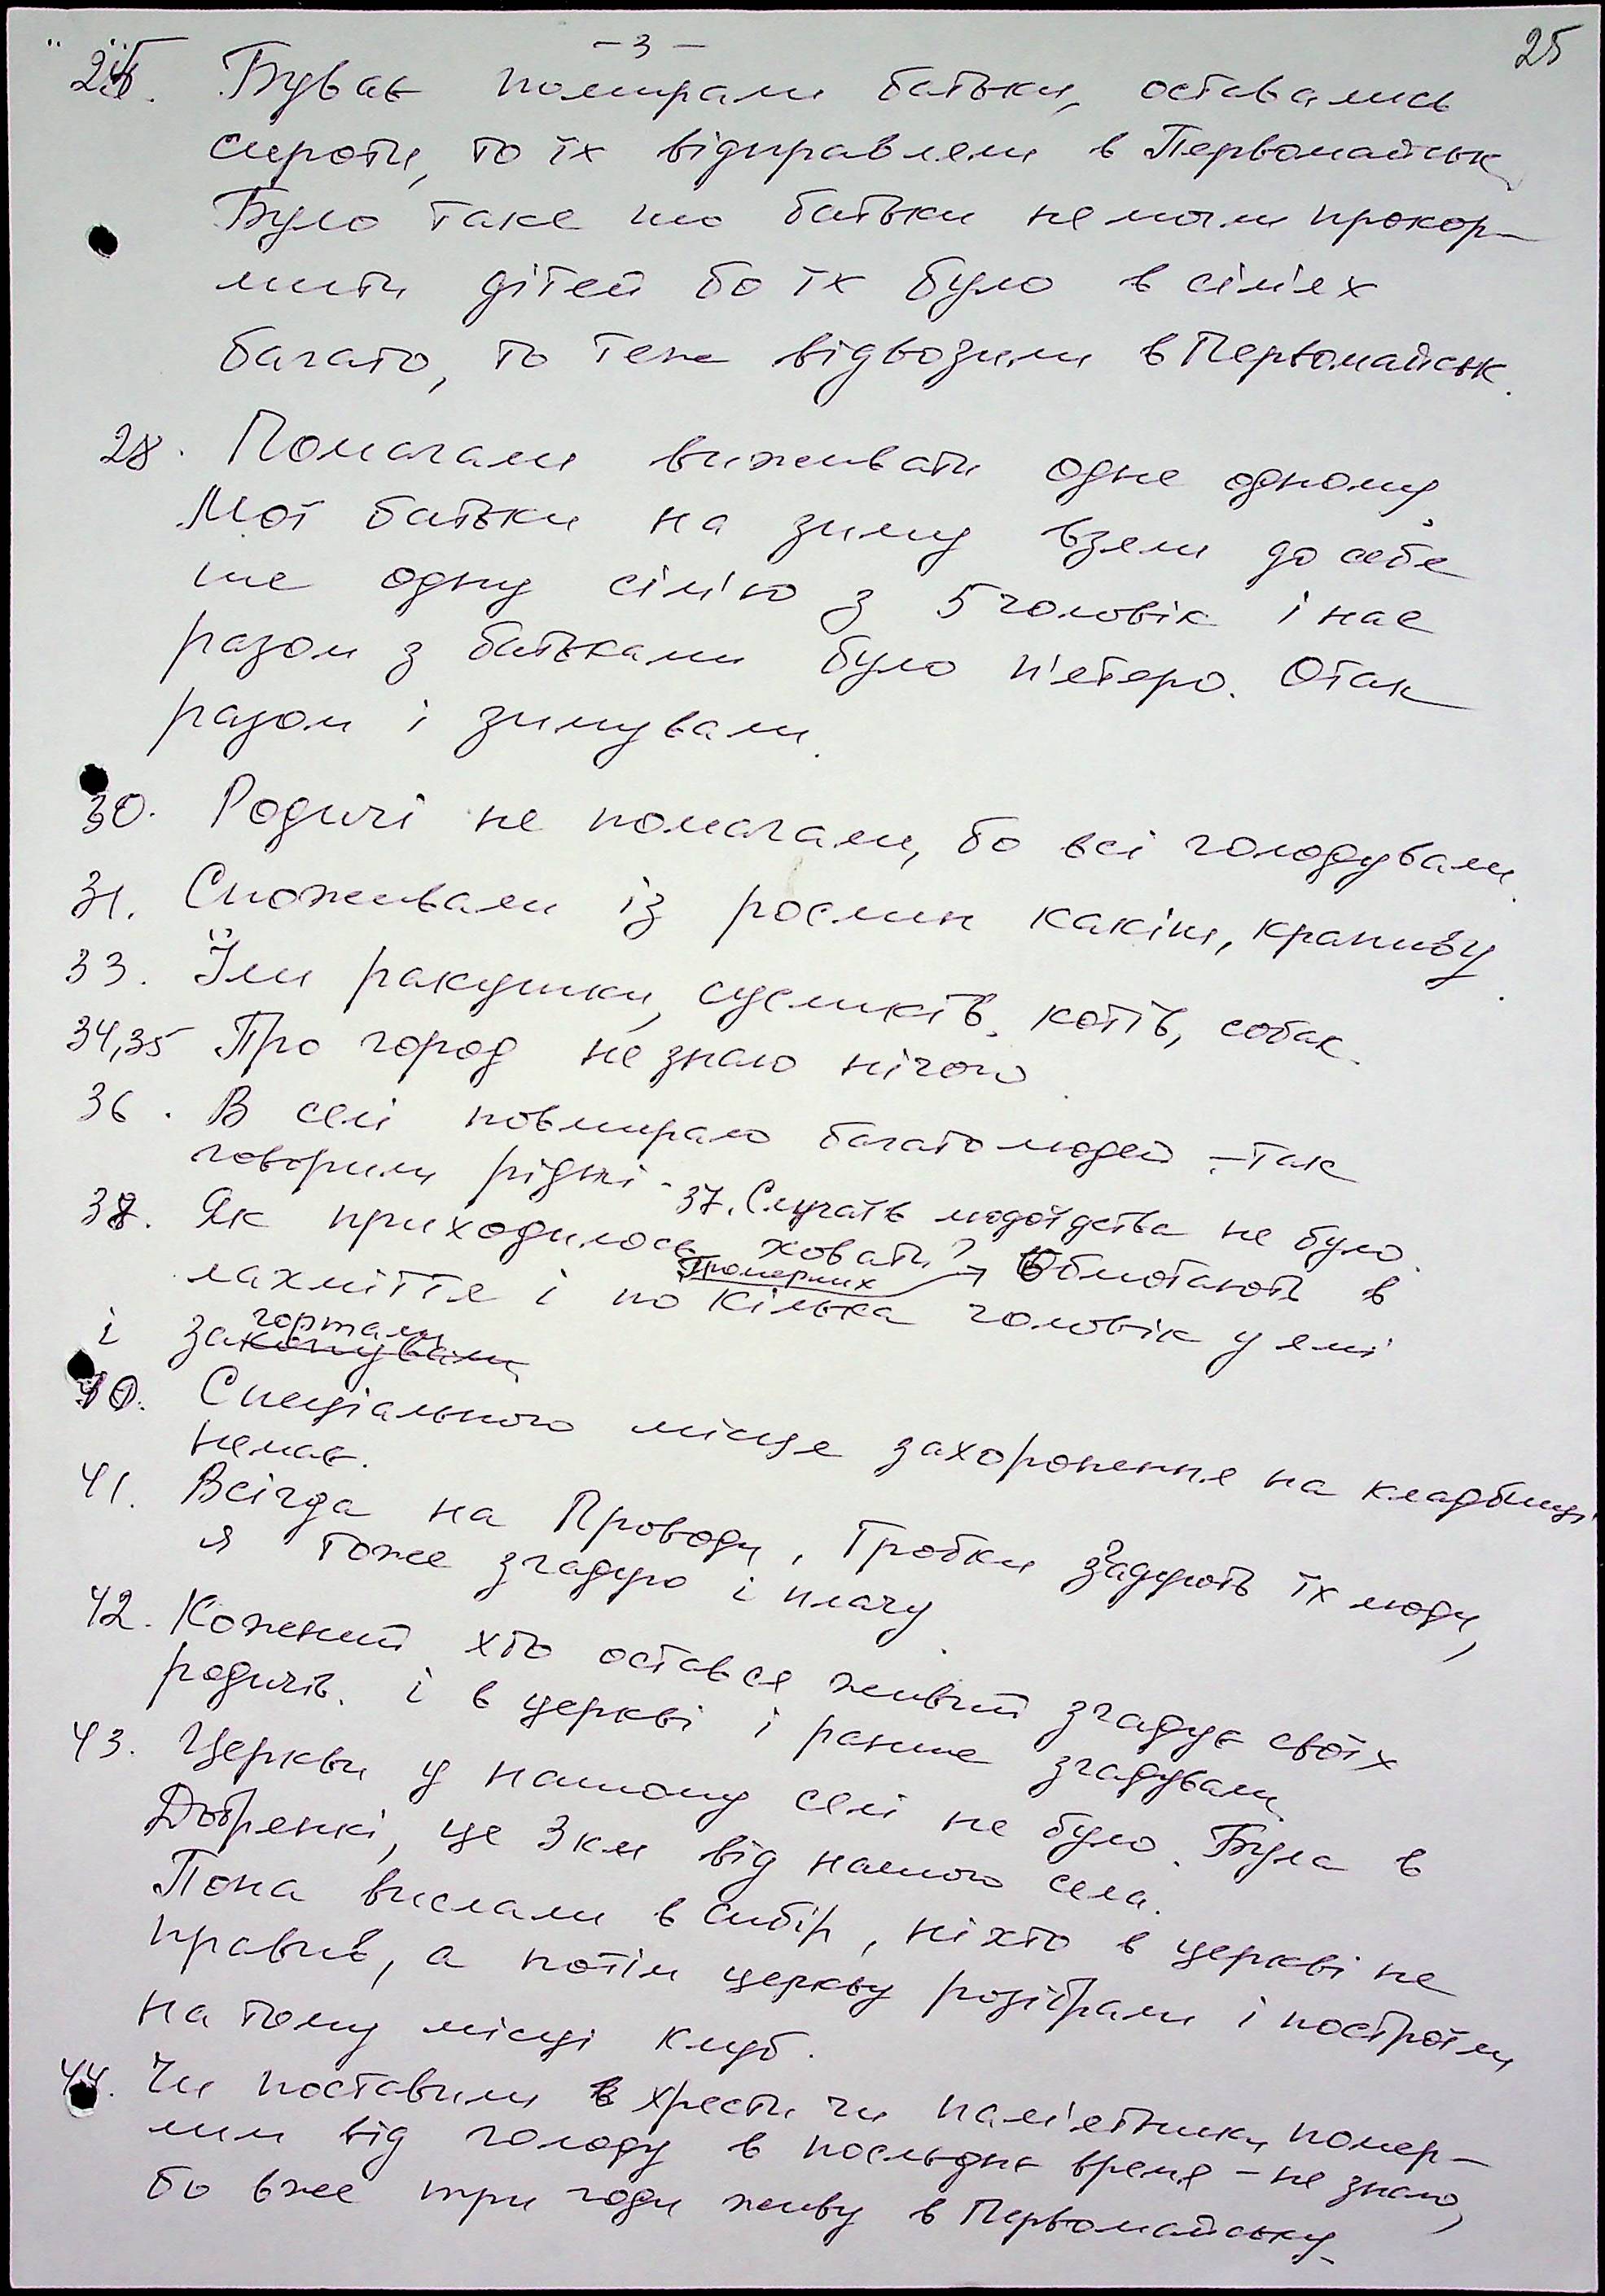 - 3 -
25
Буває помирали батьки, оставались
сироти, то їх відправляли в Первомайськ.
Було таке шо батьки не могли прокор-
мити дітей бо їх було в сім'ях
багато, то теж відвозили в Первомайськ.
28. Помагали виживати одне одному.
Мої батьки на зиму взяли до себе
ше одну сім'ю з 5 чоловік і нас
разом з батьками було п'ятеро. Отак
разом і зимували.
30. Родичі не помагали, бо всі голодували.
31. Споживали із рослин какіш, крапиву.
33. Їли ракушки, сусликів, котів, собак.
34,35 Про город не знаю нічого.
36. В селі повмирало багато людей - так
говорили рідні. 37. Случаїв людоїдства не було.
38. Як приходилось ховати? Обмотають в
Померших
лахміття і по кілька чоловік у ямі
і загортали
40. Спеціального місця захоронення на кладбищі
немає.
41. Всігда на Проводи, Гробки згадують їх люди,
я тоже згадую і плачу.
42. Кожений хто остався живий згадує своїх
родичів. і в церкві і раньше згадували
43. Церкви у нашому селі не було. Була в
Добрянкі, це 3 км від нашого села.
Попа вислали в Сибір, ніхто в церкві не
правив, а потім церкву розібрали і построїли
на тому місці клуб.
44. Чи поставили хрести чи пам'ятники помер-
лим від голоду в послєднє время - не знаю,
бо вже три годи живу в Первомайську.